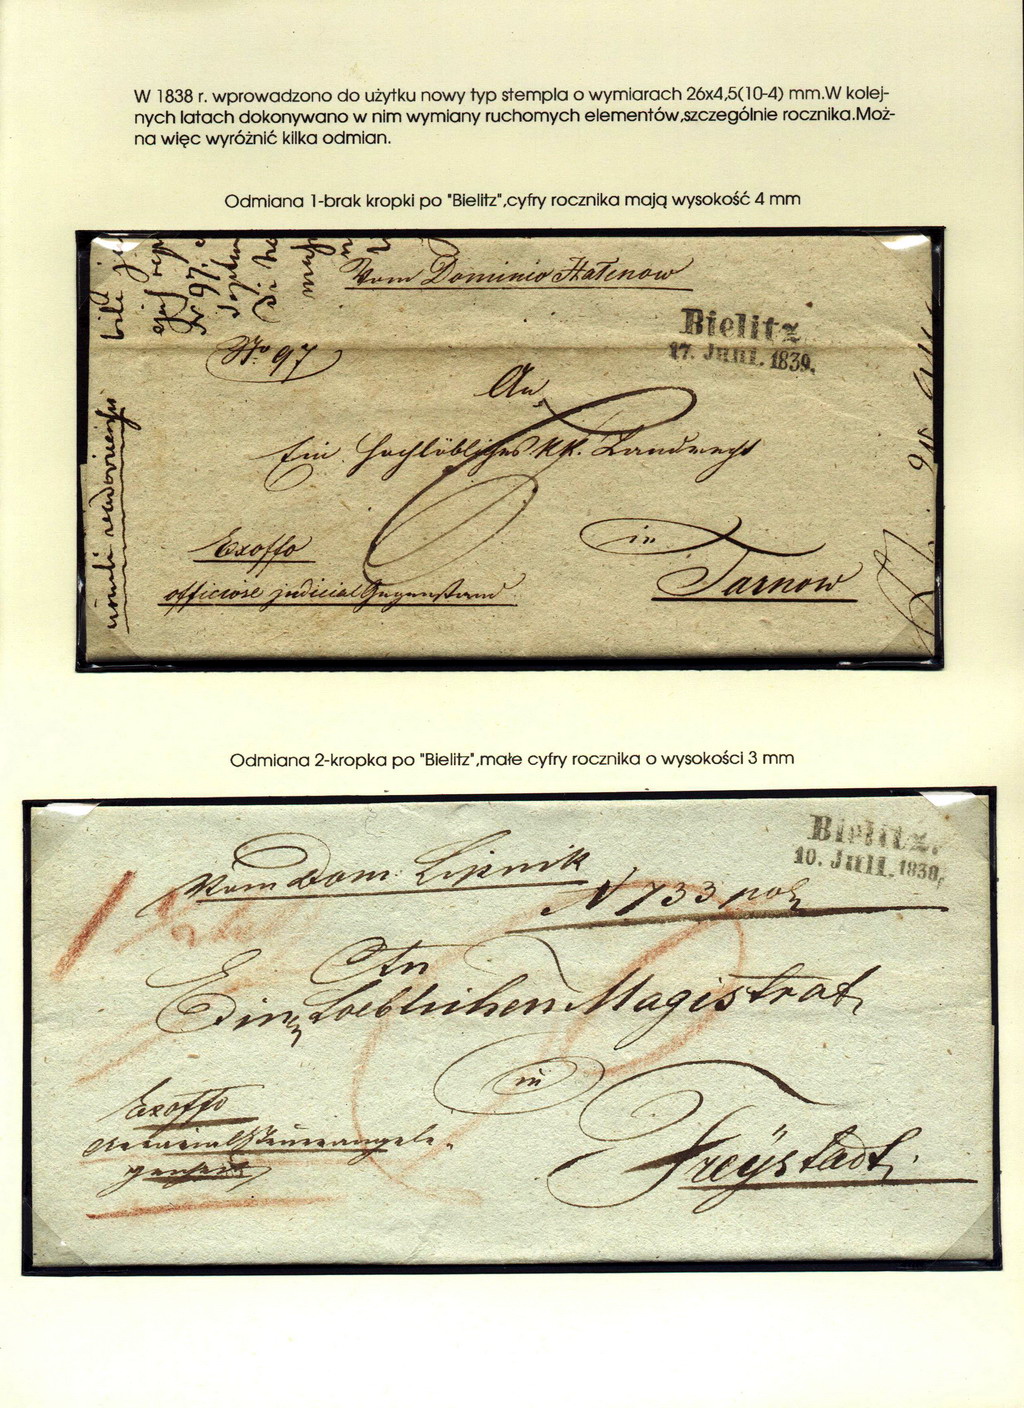 W 1838 r. wprowadzono do użytku nowy typ stempla o wymiarach 26x4,5(10-4) mm.W kolej-
nych latach dokonywano w nim wymiany ruchomych elementów,szczególnie rocznika.Moż-
na więc wyróżnić kilka odmian.
Odmiana 1-brak kropki po "Bielitz",cyfry rocznika mają wysokość 4 mm
Vom Dominio Hałcnow
Bielitz
17. JUNI. 1839.
No 97
An
Ein Hochlöbliches KK. Landrecht
Exoffo
in
officiose judicial Gegenstand
Tarnow
Odmiana 2-kropka po "Bielitz",małe cyfry rocznika o wysokości 3 mm
Bielitz.
10. JULI. 1839.
Vom Dom. Lipnik
N 733 pol
An
Einen Loeblichen Magistrat
in
Exoffo
Freÿstadt